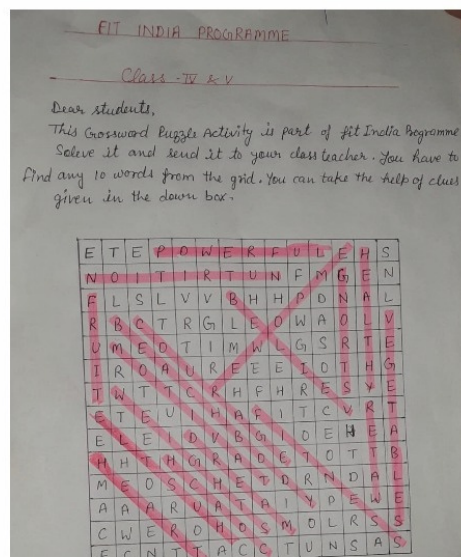 FIT INDIA PROGRAMME
Class - IV & V
Dear students,
This Crossword Puzzle Activity is part of fit India Programme
Soleve it and send it to your class teacher. You have to
find any 10 words from the grid. You can take the help of clues
given in the down box.
E T E P O W E R F U L E H S
N O I T I R T U N F M G E N
F L S L V V B H H P D N A L
R B C T R G L E O W A O L V
U M E O T I M W I G S R T E
I R O A U R E E E I O T H G
T W T T C R H F H R E S Y E
E T E U I H A F I T C U R T
E L E I D V B G I O E H E A
H H T H G R A D E T O T T B
M E O S C H E T D R N D A L
A A A R U A T A I Y D E W E
C W E R O H O S M O L R S S
E C N T T A C C T U N S A S